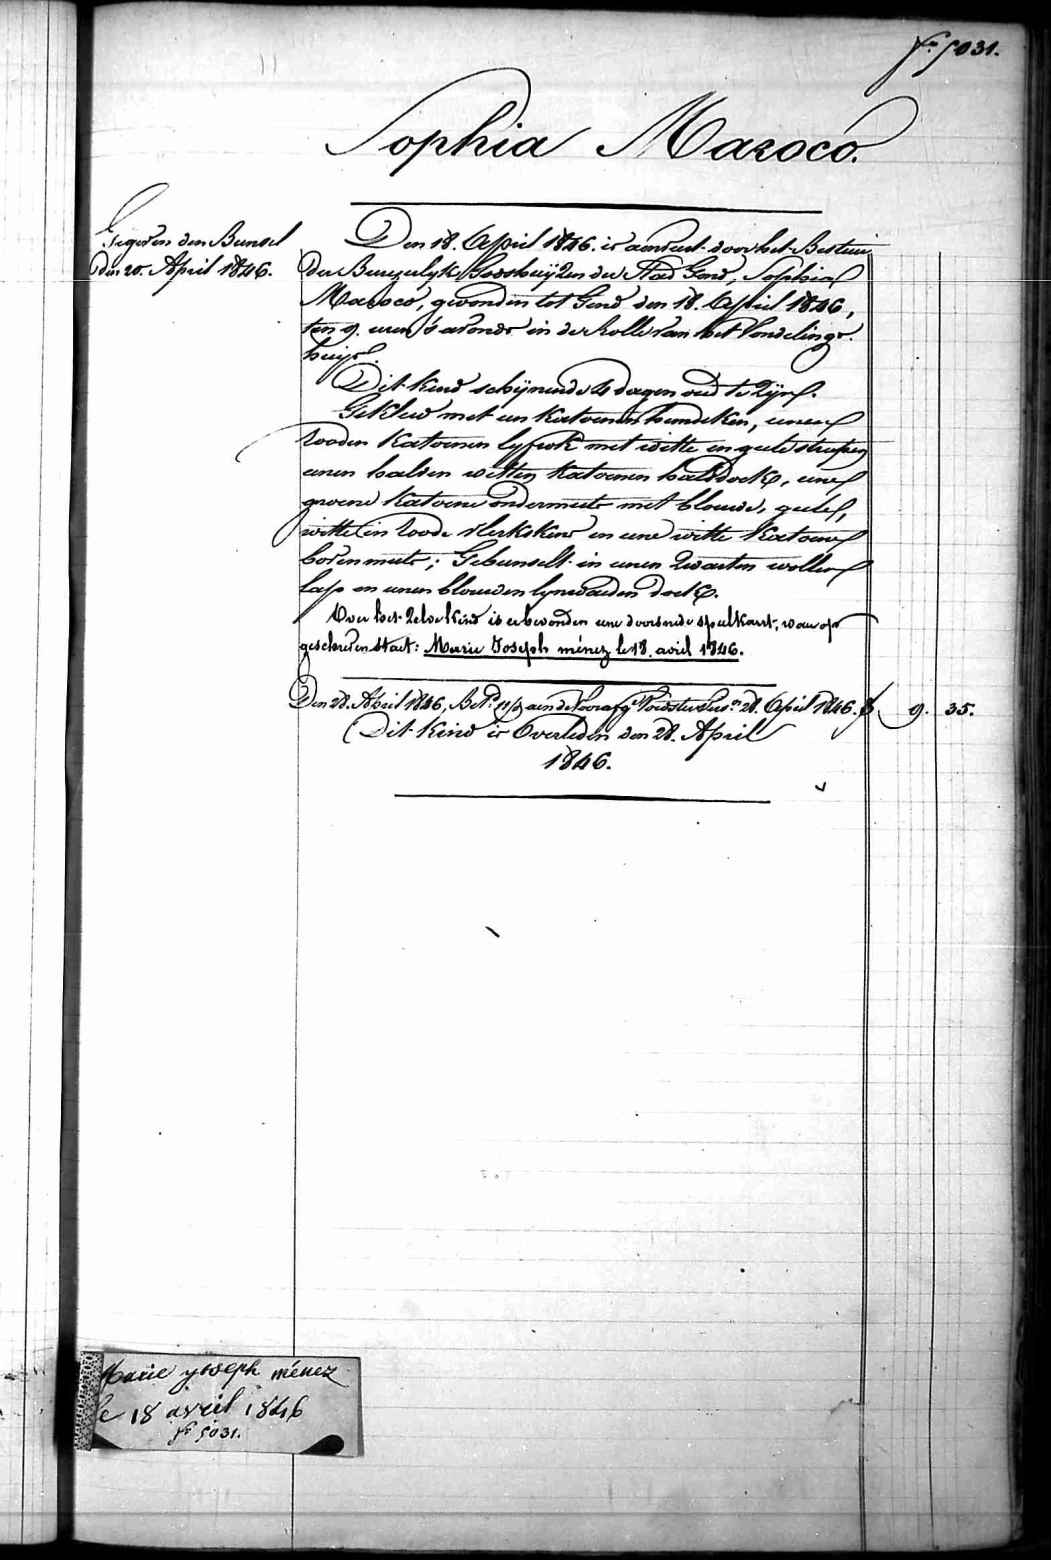 fº 5031.
Sophia Maroco.
Gegeven den Bunsel
den 20. April 1846.
Den 18. April 1846. is aenveert door het Bestuur
der Burgerlyke Godshuijzen der Stad Gend, Sophia
Maroco, gevonden tot Gend den 18. April 1846,
ten 9. uren 's avonds in de rolle van het Vondelings-
huijs.
Dit kind schijnende 4 dagen oud te zijn.
Gekleed met een katoenen hemdeken, eenen
rooden katoenen lyfrok met witte en geele streepen
eenen halven witten katoenen halsdoek, eene
groene katoene ondermuts met blauwe, geele,
witte en roode vlerkskens en eene witte katoene
bovenmuts; Gebunselt in eenen zwarten wollen
lap en eenen blauwen lynwaeden doek.
Over het zelve kind is er bevonden eene doorsnede speelkaart, waer op
geschreven staet: Marie Joseph ménez le 18. avril 1846.
Den 28. April 1846, Bet. aen de Voorafg. Voedster 28. April 1846. f 9. 35.
Dit kind is Overleden den 28. April
1846.
Marie joseph ménez
le 18 avril 1846
fº 5031.